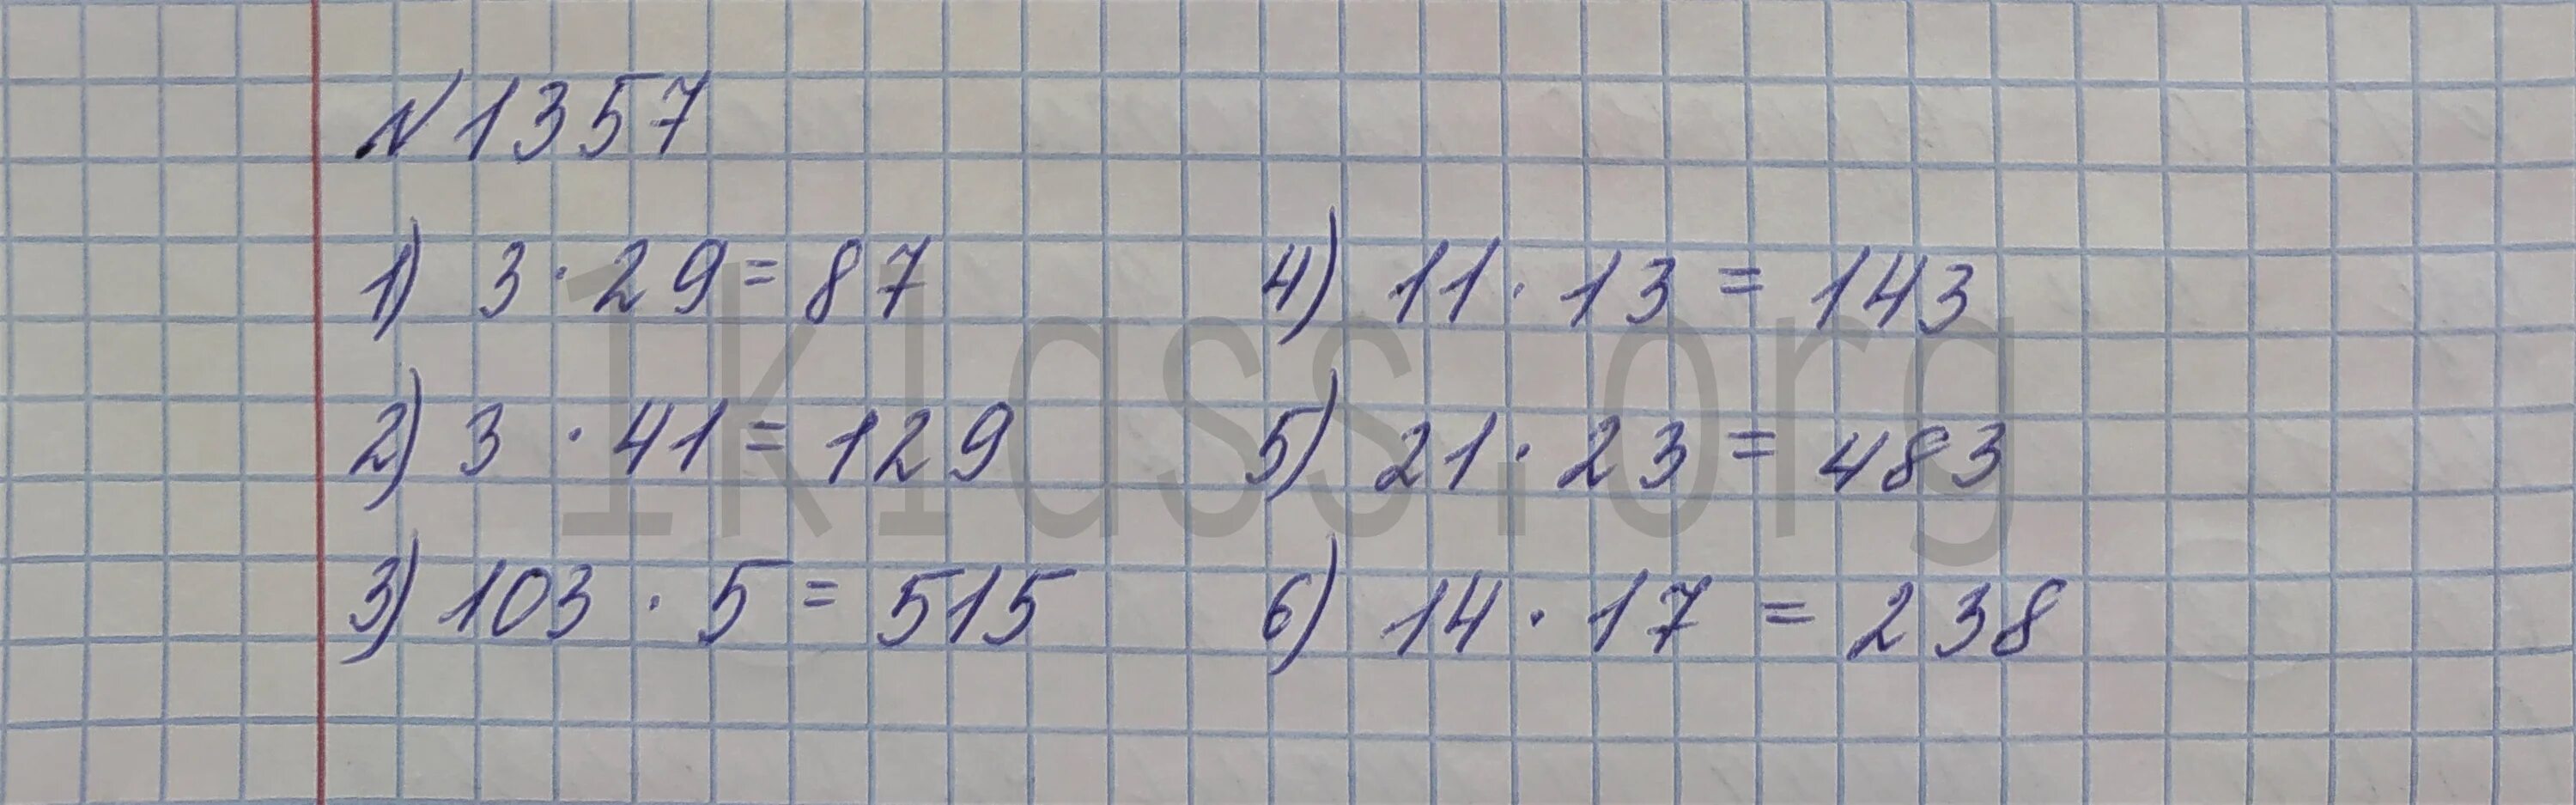 №1357
1) 3 · 29 = 87
2) 3 · 41 = 129
3) 103 · 5 = 515
4) 11 · 13 = 143
5) 21 · 23 = 483
6) 14 · 17 = 238
1klass.org